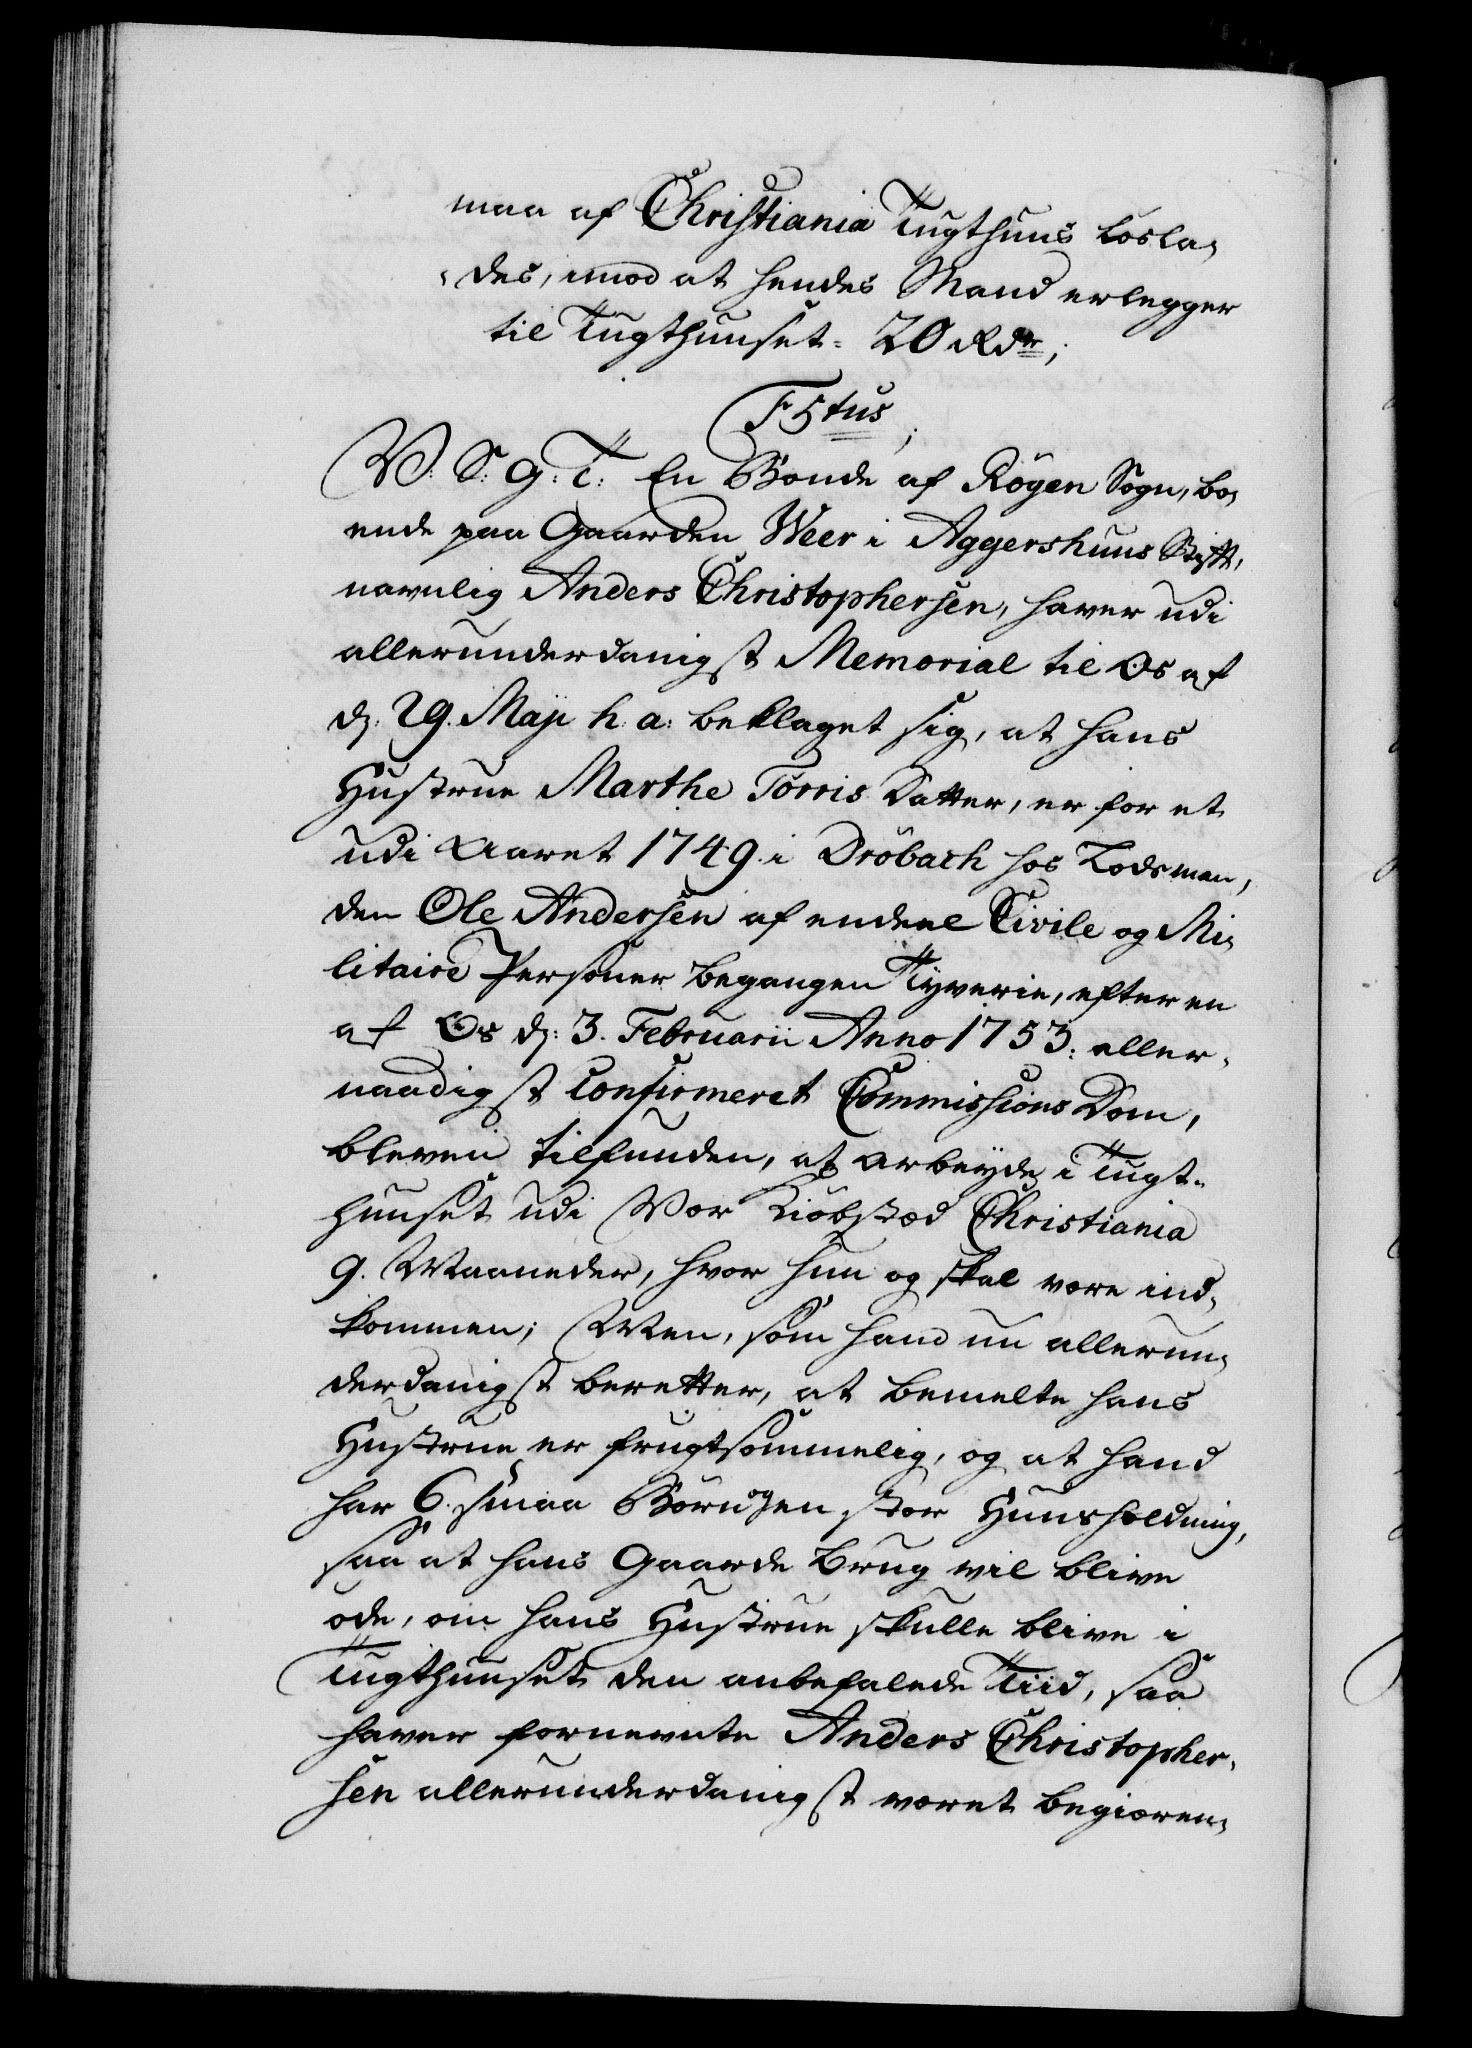 maa af Christiania Tugthuus Løsla-
-des, imod at hendes Mand erlegger
til Tugthuuset. 20 Rdr;
F5tus;
V. S: G: T: En Bonde af Røgen Sogn, bo-
ende paa Gaarden Weer i Aggershuus Stift,
navnlig Anders Christophersen, haver udi
allerunderdanigst Memorial til Os af
d: 29. Maji h: a: beklaget sig, at hans
Hustrue Marthe Torris Datter, er for et
udi Aaret 1749. i Drøbach hos Lodsman,
den Ole Andersen af endeel Civile og Mi-
litaire Personer begangen Tyverie, efter en
af Os d: 3. Februarii Anno 1753. aller-
naadigst Confirmeret Commissions Dom,
bleven tilfunden, at arbeyde i Tugt-
huuset udi Vor Kiøbstæd Christiania
9. Maaneder, hvor hun og skal være ind-
kommen; Men, som hand nu allerun-
derdanigst beretter, at bemelte hans
Hustrue er frugtsommelig, og at hand
har 6. smaa Børn og en stor Huusholdning,
saa at hans Gaarde Brug vil blive
øde, om hans Hustrue skulle blive i
Tugthuuset den anbefalede Tiid, saa
haver fornevnte Anders Christopher-
sen allerunderdanigst været begiæren-